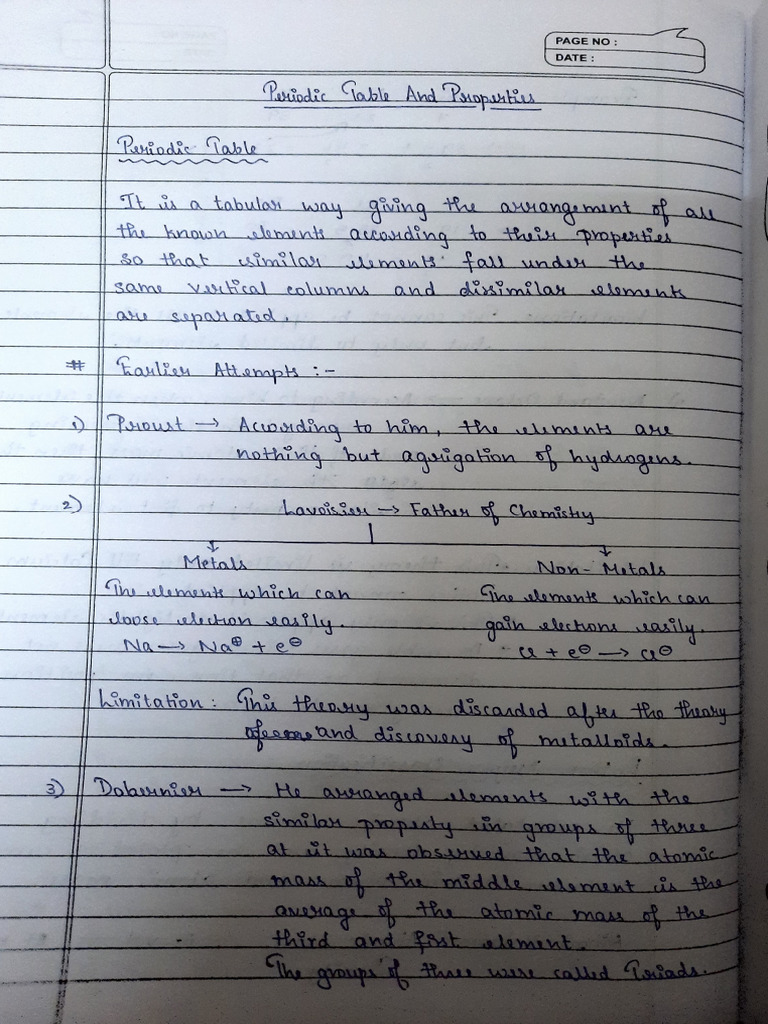 PAGE NO :
DATE :
Periodic Table And Properties
Periodic Table
It is a tabular way giving the arrangement of all
the known elements according to their properties
so that similar elements fall under the
same vertical columns and dissimilar elements
are separated.
# Earlier Attempts :-
1) Proust → According to him, the elements are
nothing but agrigation of hydrogens.
2) Lavoisier → Father of Chemistry
Metals Non-Metals
The elements which can The elements which can
loose electron easily. gain electrons easily.
Na → Na⊕ + e⊖ Cl + e⊖ → Cl⊖
Limitation : This theory was discarded after the theory
and discovery of metalloids.
3) Dobernier → He arranged elements with the
similar property in groups of three
at it was observed that the atomic
mass of the middle element is the
average of the atomic mass of the
third and first element.
The groups of three were called Triads.